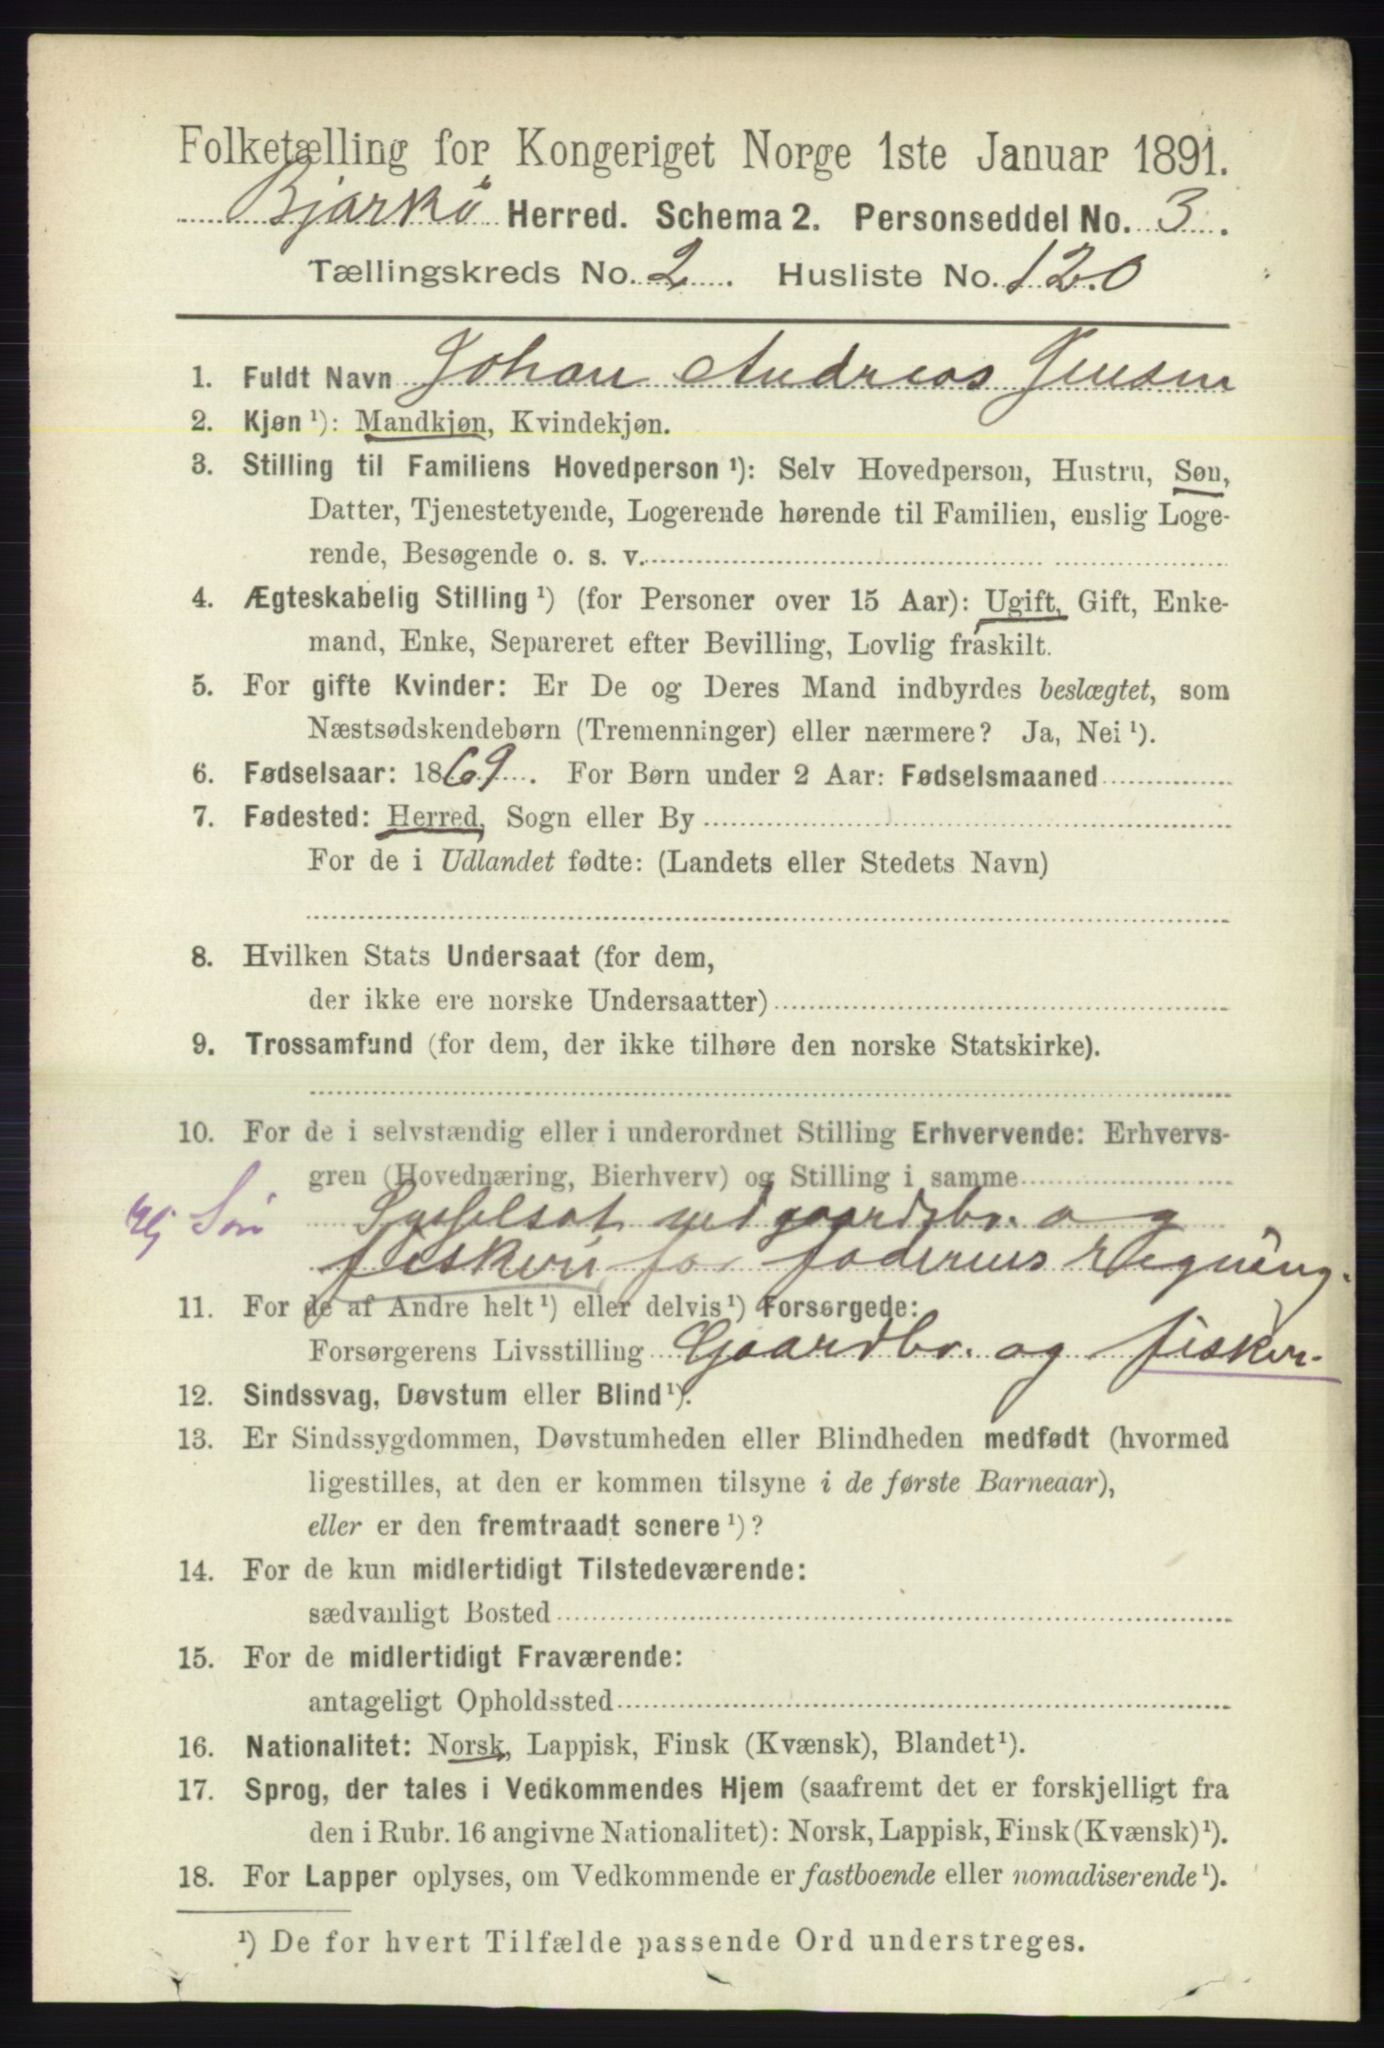 Folketælling for Kongeriget Norge 1ste Januar 1891.
Bjarkö Herred. Schema 2. Personseddel No. 3.
Tællingskreds No. 2. Husliste No. 120
1. Fuldt Navn Johan Andreas Jensen
2. Kjøn ¹): Mandkjøn, Kvindekjøn.
3. Stilling til Familiens Hovedperson ¹): Selv Hovedperson, Hustru, Søn,
Datter, Tjenestetyende, Logerende hørende til Familien, enslig Loge-
rende, Besøgende o. s. v.
4. Ægteskabelig Stilling ¹) (for Personer over 15 Aar): Ugift, Gift, Enke-
mand, Enke, Separeret efter Bevilling, Lovlig fraskilt.
5. For gifte Kvinder: Er De og Deres Mand indbyrdes beslægtet, som
Næstsødskendebørn (Tremenninger) eller nærmere? Ja, Nei ¹).
6. Fødselsaar: 1869. For Børn under 2 Aar: Fødselsmaaned
7. Fødested: Herred, Sogn eller By
For de i Udlandet fødte: (Landets eller Stedets Navn)
8. Hvilken Stats Undersaat (for dem,
der ikke ere norske Undersaatter)
9. Trossamfund (for dem, der ikke tilhøre den norske Statskirke).
10. For de i selvstændig eller i underordnet Stilling Erhvervende: Erhvervs-
gren (Hovednæring, Bierhverv) og Stilling i samme
Søn Sysselsat med gaardsbr. og
fiskeri for faderens regning.
11. For de af Andre helt ¹) eller delvis ¹) Forsørgede:
Forsørgerens Livsstilling Gaardbr. og fisker.
12. Sindssvag, Døvstum eller Blind ¹).
13. Er Sindssygdommen, Døvstumheden eller Blindheden medfødt (hvormed
ligestilles, at den er kommen tilsyne i de første Barneaar),
eller er den fremtraadt senere ¹)?
14. For de kun midlertidigt Tilstedeværende:
sædvanligt Bosted
15. For de midlertidigt Fraværende:
antageligt Opholdssted
16. Nationalitet: Norsk, Lappisk, Finsk (Kvænsk), Blandet ¹).
17. Sprog, der tales i Vedkommendes Hjem (saafremt det er forskjelligt fra
den i Rubr. 16 angivne Nationalitet): Norsk, Lappisk, Finsk (Kvænsk) ¹).
18. For Lapper oplyses, om Vedkommende er fastboende eller nomadiserende ¹).
¹) De for hvert Tilfælde passende Ord understreges.